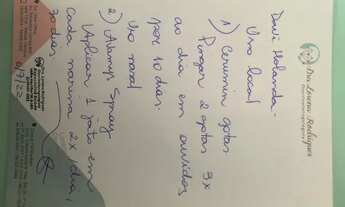 Dra. Lorena Rodrigues
Davi Holanda
Uso local
1) Cerumin gotas
Pingar 2 gotas 3x
ao dia em ouvidos
por 10 dias.
Uso nasal
2) Spray
(Aplicar 1 jato em
cada narina 2x/dia,
30 dias